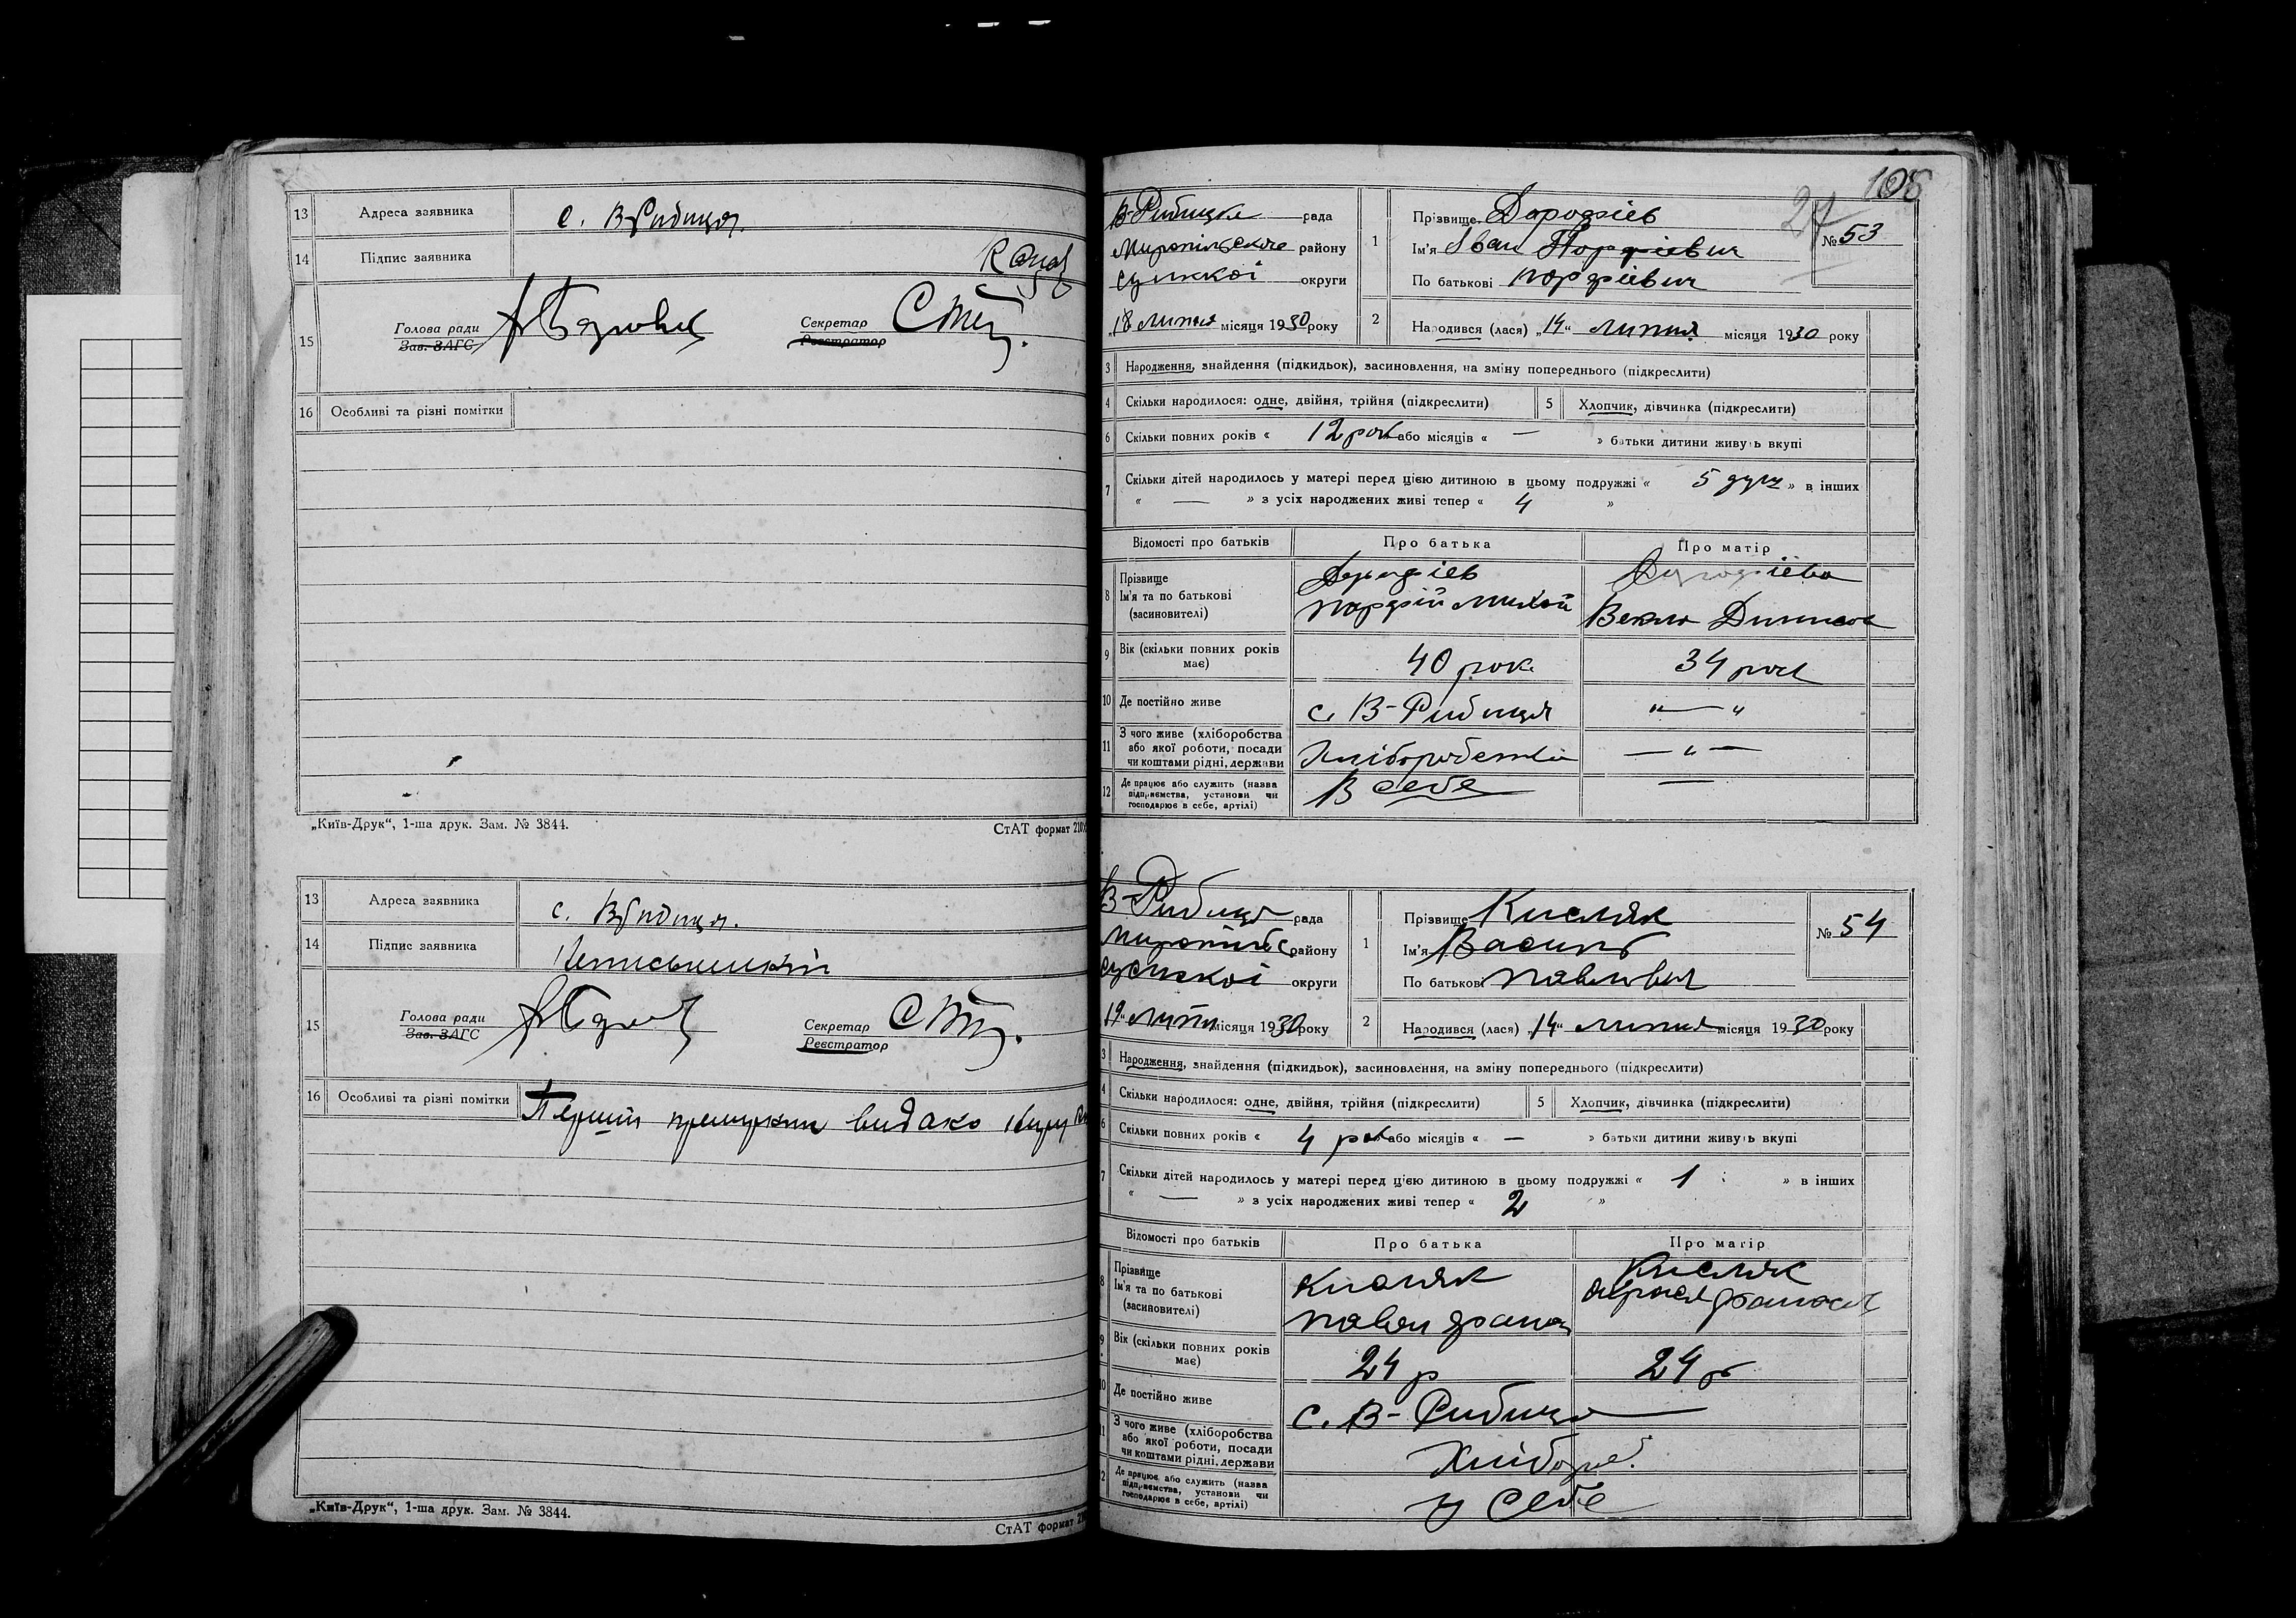 13 Адреса заявника с. В-Рибиця.
14 Підпис заявника
15 Голова ради Зав. ЗАГС Секретар Реєстратор
16 Особливі та різні помітки
„Київ-Друк“, 1-ша друк. Зам. № 3844. СтАТ формат
13 Адреса заявника с. В-Рибиця.
14 Підпис заявника
15 Голова ради Зав. ЗАГС Секретар Реєстратор
16 Особливі та різні помітки Перший примірник видано
„Київ-Друк“, 1-ша друк. Зам. № 3844.
СтАТ формат
108
27
В-Рибицька рада
Миропільського району
Сумської округи
„18 Липня місяця 1930 року
1 Прізвище Дорофіїв
Ім'я Іван Порфієвич
По батькові Порфієвич
№ 53
2 Народився (лася) „14“ липня місяця 1930 року
3 Народження, знайдення (підкидьок), засиновлення, на зміну попереднього (підкреслити)
4 Скільки народилося: одне, двійня, трійня (підкреслити) 5 Хлопчик, дівчинка (підкреслити)
6 Скільки повних років « 12 рок або місяців « — » батьки дитини живуть вкупі
7 Скільки дітей народилось у матері перед цією дитиною в цьому подружжі « 5 душ » в інших
« — » з усіх народжених живі тепер « 4 »
Відомості про батьків Про батька Про матір
8 Прізвище Ім'я та по батькові (засиновителі)
Порфій Михай
Векла
9 Вік (скільки повних років має) 40 рок. 34 рок
10 Де постійно живе с. В-Рибиця “—“
11 З чого живе (хліборобства або якої роботи, посади чи коштами рідні, держави — “ —
12 Де працює або служить (назва підприємства, установи чи господарює в себе, артілі) В себе —
В-Рибицьк рада
Миропільс району
Сумської округи
19“ Липня місяця 1930 року
1 Прізвище Кисляк
Ім'я Василь
По батькові Павлович
№ 54
2 Народився (лася) „14“ липня місяця 1930 року
3 Народження, знайдення (підкидьок), засиновлення, на зміну попереднього (підкреслити)
4 Скільки народилося: одне, двійня, трійня (підкреслити) 5 Хлопчик, дівчинка (підкреслити)
6 Скільки повних років « 4 рок або місяців « — » батьки дитини живуть вкупі
7 Скільки дітей народилось у матері перед цією дитиною в цьому подружжі « 1 » в інших
« — » з усіх народжених живі тепер « 2 »
Відомості про батьків Про батька Про матір
8 Прізвище Ім'я та по батькові (засиновителі) Кисляк Кисляк
Павел
9 Вік (скільки повних років має) 24 р 24 р
10 Де постійно живе с. В-Рибиця
11 З чого живе (хліборобства або якої роботи, посади чи коштами рідні, держави Хлібороб.
12 Де працює або служить (назва підприємства, установи чи господарює в себе, артілі) у себе